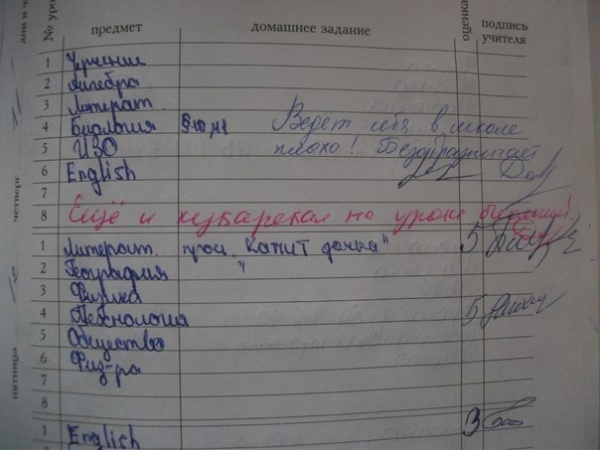 № уро предмет домашнее задание оценка подпись учителя
1 Черчение
2 Алгебра
3 Литерат.
4 Биология §10 Ведёт себя в школе
5 ИЗО плохо! Безобразничает
6 English
7
8 Ещё и кукарекал на уроке биологии!
четверг
1 Литерат. проч. "Капит дочка" 5
2 География "
3 Физика
4 Технология 5
5 Общество
6 Физ-ра
7
8
пятница
1 English 3